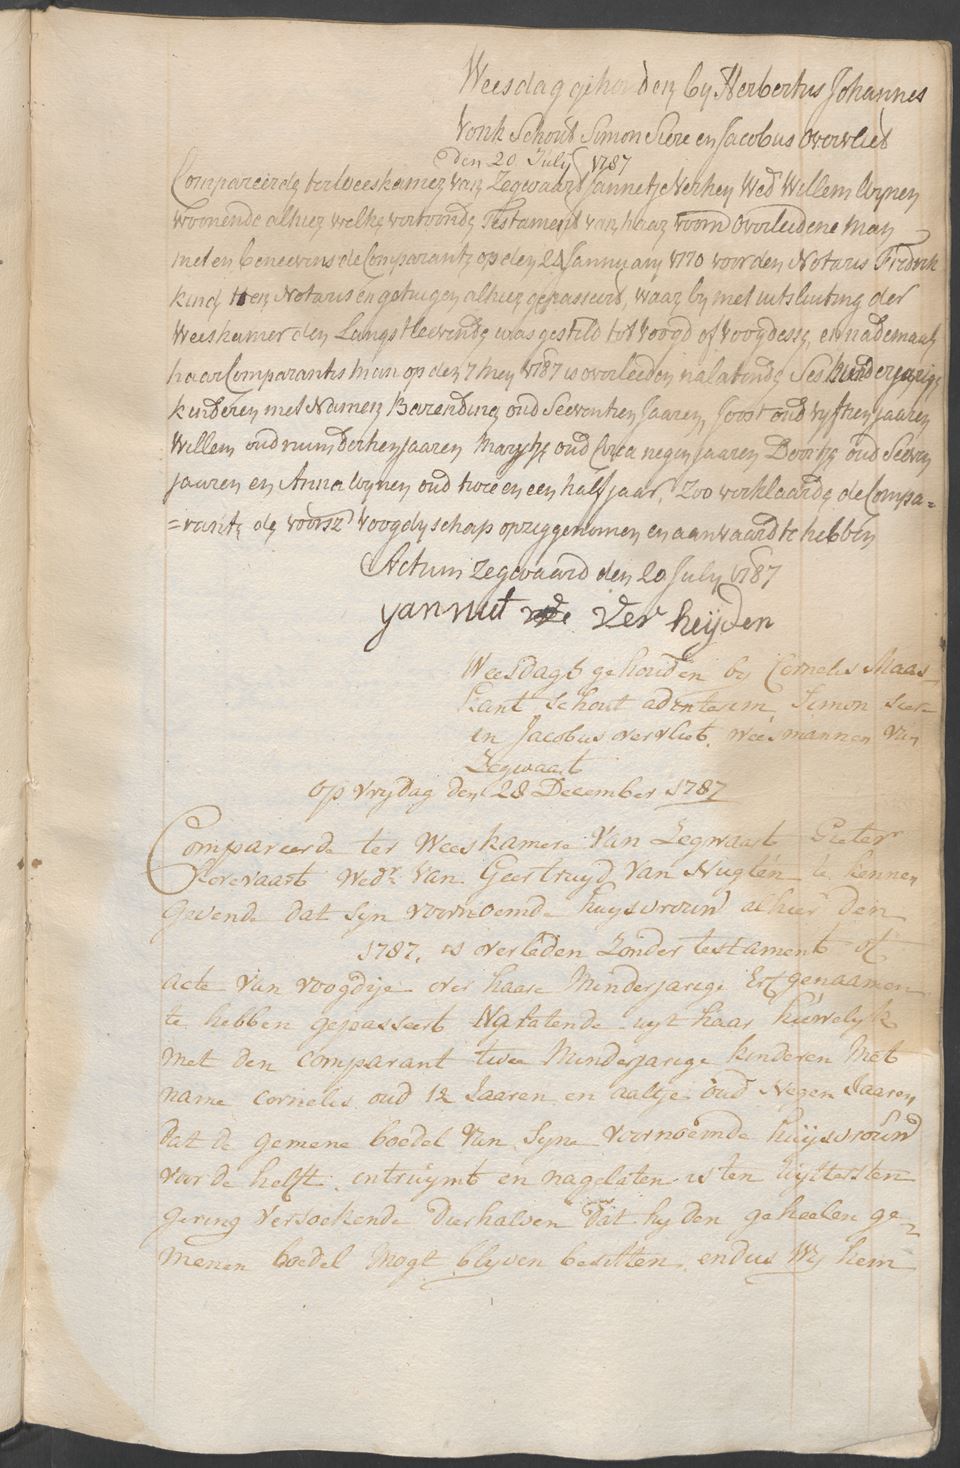 Weesdag gehouden by Herbertus Johannes
Vonk Schout Simon Siere en Jacobus Overvliet
den 20 July 1787
Compareerde ter Weeskamer van Zegwaard Jannetje Verhey Wed Willem Wynen
woonende alhier welke vertoonde Testament van haar voorn Overleedene Man
met en beneevens de Comparante op den 24 January 1770 voor den Notaris Fredrik
kind Notaris en getuigen alhier gepasseerd, waar by met uitsluiting der
Weeskamer den Langstleevende was gesteld tot voogd of voogdesse, en nademaal
haar Comparantes man op den 7 Mey 1787 is overleeden nalatende Ses minderjarige
kinderen met Namen Barendina oud Seeventien Jaaren, Joost oud vyftien jaaren
Willem oud ruim dertien Jaaren Marytje oud Circa negen Jaaren Doortje oud Seeven
jaaren en Anna Wynen oud twee en een half jaar, Zoo verklaarde de Compa=
=rante de voorsz voogdyschap op zig genomen en aanvaard te hebben
Actum Zegwaard den 20 July 1787
yannut wde Ver heijden
Weesdagt gehouden by Cornelis Maas
kant schout adinterim, Simon siere
en Jacobus overvliet, weesmannen van
Zegwaart
op vrydag den 28 December 1787
Compareerde ter Weeskamere Van Zegwaart Pieter
Korevaart Wedr. Van Geertruyd Van Nuglen te kennen
gevende dat syn voornoemde huysvrouw alhier den
1787, is overleden Zonder testament of
acte van voogdije over haare Minderjarige Erfgenaamen
te hebben gepasseert Nalatende uyt haar huwelyk
met den comparant twee Minderjarige kinderen Met
name Cornelis oud 12 Jaaren en aaltje oud Negen Jaaren
dat de gemene boedel van syne voornoemde huijsvrouw
voor de helft ontruymt en nagelaten is ten uytersten
gering versoekende derhalven dat hy den geheelen ge=
menen boedel Mogt blyven besitten, en dus Wy hem